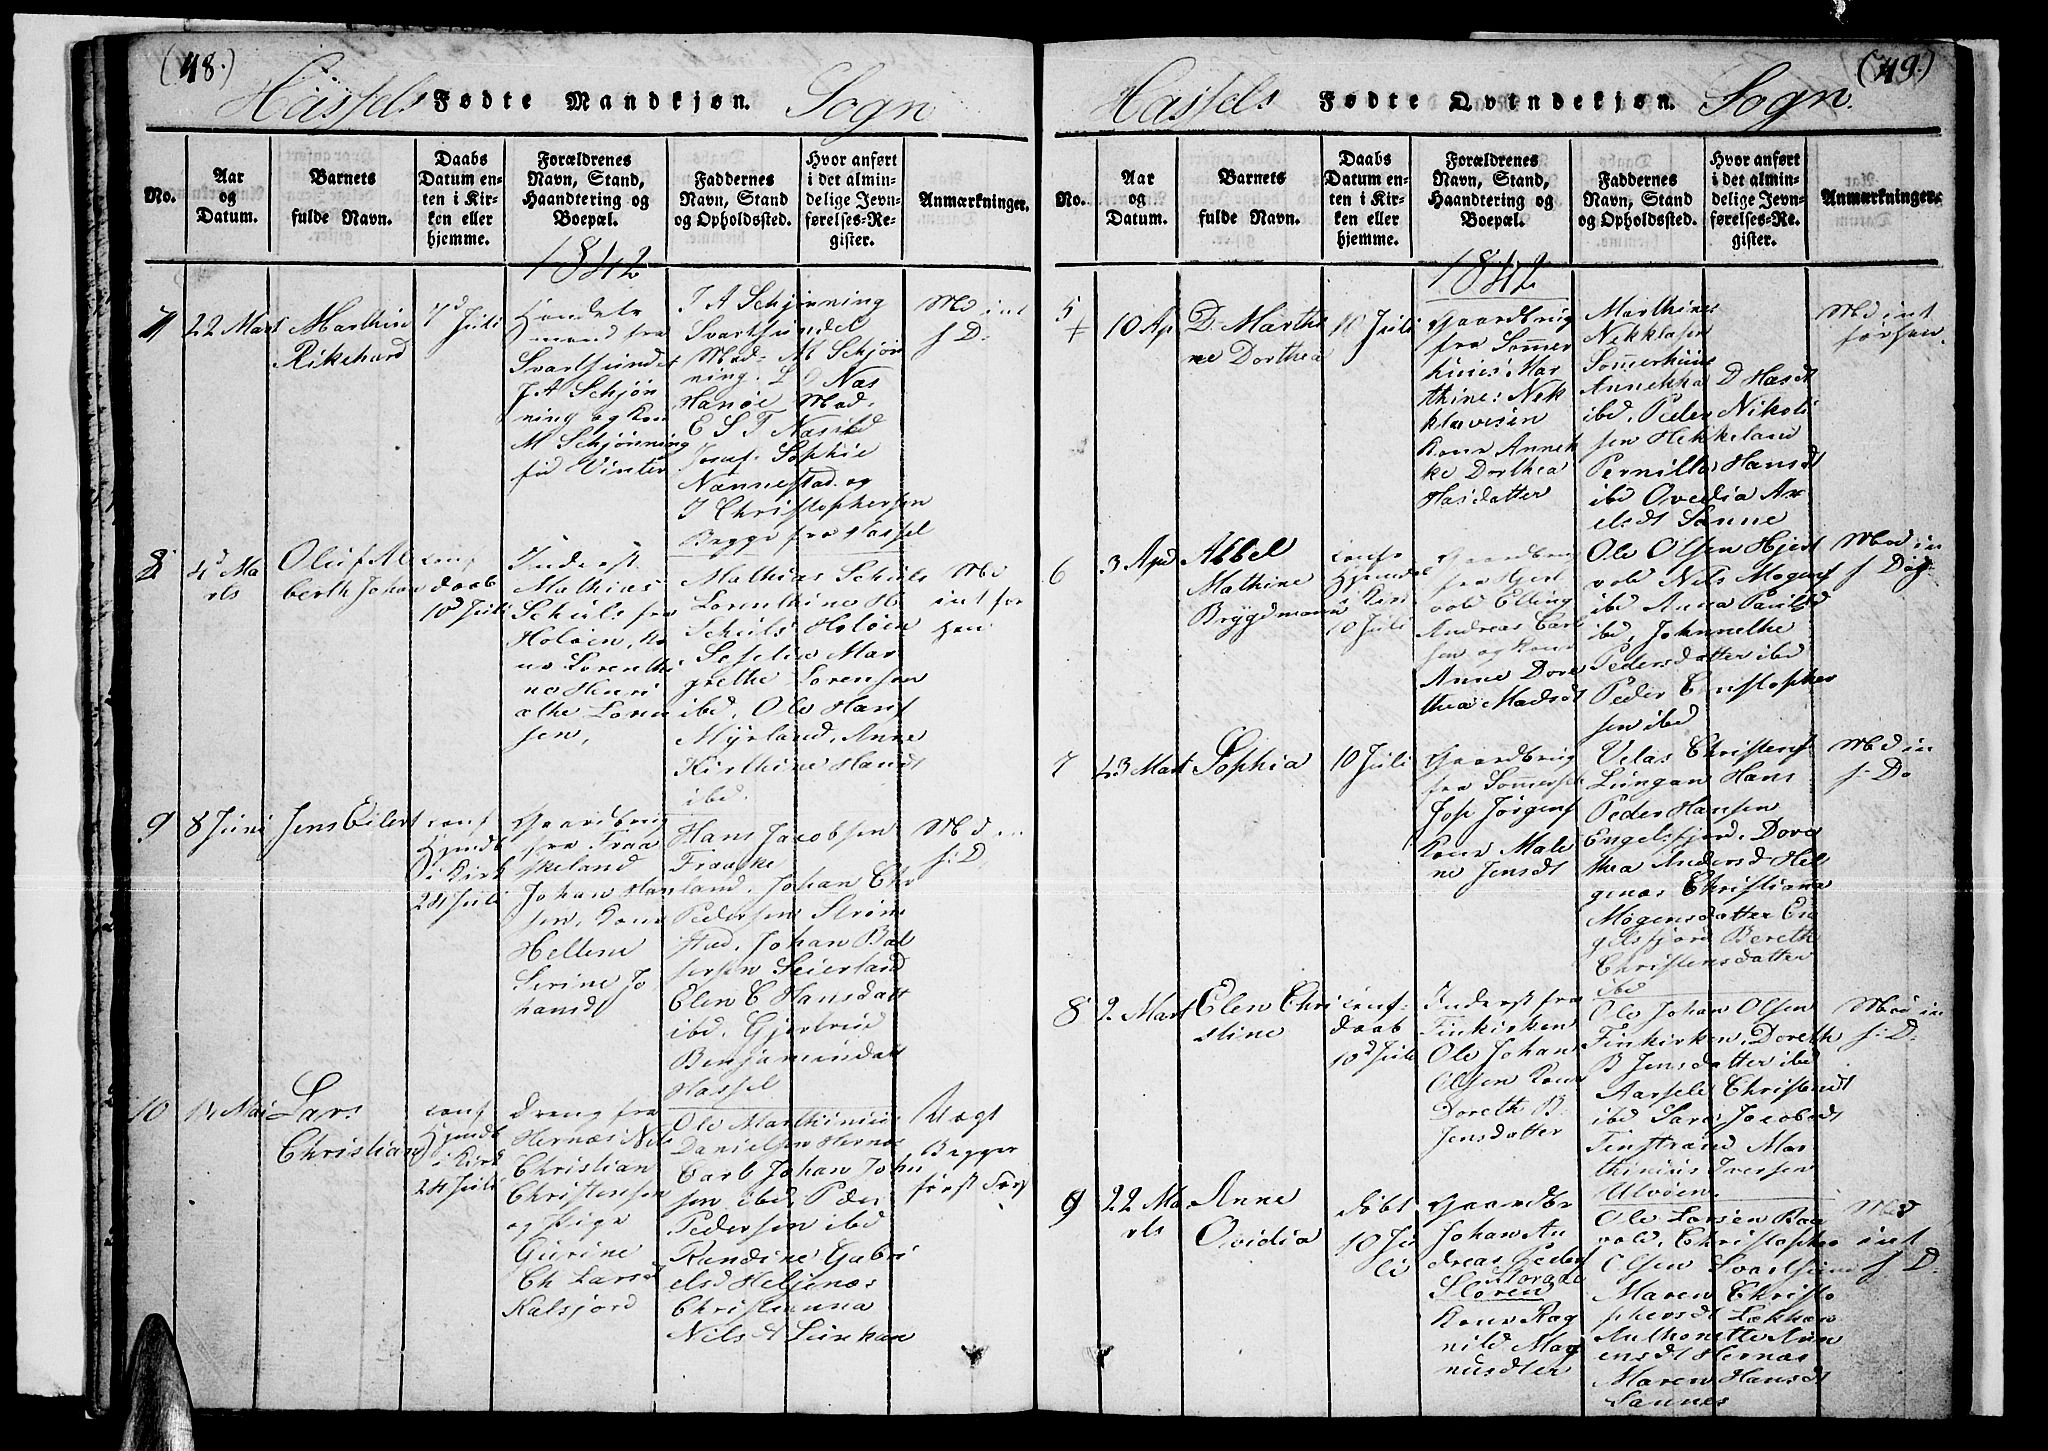 (48.)
Hassels Fødte Mandkjøn. Sogn
No.
Aar
og
Datum.
Barnets
fulde Navn.
Daabs
Datum en-
ten i Kir-
ken eller
hjemme.
Forældrenes
Navn, Stand,
Haandtering og
Boepæl.
Faddernes
Navn, Stand
og Opholdssted.
Hvor anført
i det almin-
delige Jevn-
førelses-Re-
gister.
Anmærkninger.
1842
7
22 Mars
Marthin
Rikehard
7d Juli
Handels
mand fra
Svartsundet
J A Schjøn
ning og Kone
M Schjønning
fød Vinter
J A Schjønning
Svartsundet
Mad. M Schjøn
ning.
Hanøe Mad.
Sophie
Nannestad og
J Christophersen
Brygge fra Hassel
Md int
f D.
8
4d Ma
rts
Oluf Al
berth Johan
conf
daab
10d Juli
Inderst
Mathias
Schuls fra
Holøen, Ko
ne Lorenthi
ne Henri
ethe Loren
sen,
Mathias Schuls
Lorenthine H.
Schuls Holøen
Mar
grethe Lorensen
ibd, Ole Hans
Myrland, Anne
Kirthine Hansdt
ibd.
Md
int for
hen
9
8 Juni
Jens Eilert
conf
Hjmdb
i Kirk
24 Juli
Gaardbrug
fra Fraa
skeland
Johan Han
sen, Kone
Hellene
Serine Jo
hansdt
Hans Jacobsen
Fraaske
land, Johan Chr
Pedersen Strøm
stad, Johan Bal
sersen Seierland
Elen C Hansdatt
ibd, Gjertrud
Benjamindatt
Hassel
Md in
f: D.
10
14 Mai
Lars
Christian
conf
Hjmdb
i Kirk
24 Juli
Dreng fra
Hernæs Nils
Christian
Christensen
og Pige
Gurine
Ch Larsd
Kalsjord
Ole Marthinus
Danielsen Hernæs
Carl Johan John
sen ibd, Peder
Pedersen ibd
Rendine Gabri
elsd Heljenæs
Christianna
Nils d
Vægt
Brygge
først Førs
(49.)
Hassels Fødte Qvindekjøn. Sogn.
No.
Aar
og
Datum.
Barnets
fulde Navn.
Daabs
Datum en-
ten i Kir-
ken eller
hjemme.
Forældrenes
Navn, Stand,
Haandtering og
Boepæl.
Faddernes
Navn, Stand
og Opholdssted.
Hvor anført
i det almin-
delige Jevn-
førelses-Re-
gister.
Anmærkninger.
1842
5
+
10 Ap
D Marthi
ne Dorthea
10 Juli
Gaardbrug
fra Sommer
huus Mar
thines Nek
klavesen
Kone Annek
ke Dorthea
Hasdatter
Marthines
Nekklasen
Sommerhuus
Annekka D Hasdt
ibd, Peder Nikoli
sen Hekkeland
Pernille Hansdt
ibd Ovedia Ax
elsdt Sanne
Md int
førhen.
6
3 Apr
Abbel
Mathine
Bryggmann
conf
Hjemde
i Kir
10 Juli
Gaardbrug
fra Hjert
vold Elling
Andreas Carl
sen og Kone
Anne Doro
thea Madsdt
Ole Olsen Hjert
vold Nils Mogens
ibd Anna Paulsd
ibd, Johannethe
Pedersdatter ibd
Peder Christopher
sen ibd
Mod in
f Do
7
23 Mart
Sophia
10 Juli
Gaardbrug
fra Sommersel
Jose Jørgens
Kone Male
ne Jensdt
Velas Christens
Lungan Hans
Peder Hansen
Engelsfjord, Doro
thea Andersd Hel
genæs Christianna
Mogensdatter En
gelsfjord Bereth
Christensdatter
ibd
Md in
f: Do
8
2 Mart
Elen Chri
stine
conf.
daab
10d Juli
Inderst fra
Finkirken
Ole Johan
Olsen Kone
Doreth B.
Jensdatter
Ole Johan Olsen
Finkirken, Doreth
B Jensdatter ibd
Aarsele Christensdt
ibd Sara Jacobsdt
Finstrand Mar
thinius Iversen
Ulvøen
Md in
f: D.
9
22 Ma
rts
Anne
Ovidia
døbt
10 Ju
li
Gaardbr
Johan An
dreas Peders
Storaae
Kone Rag
nild Mag
nusdtter
Ole Larsen Ram
vold, Christopher
Olsen Svartsund
Maren Christo
phersdt
Anthonette
Hernæs
Maren Hansdt
Sannes
Md
int
f D.